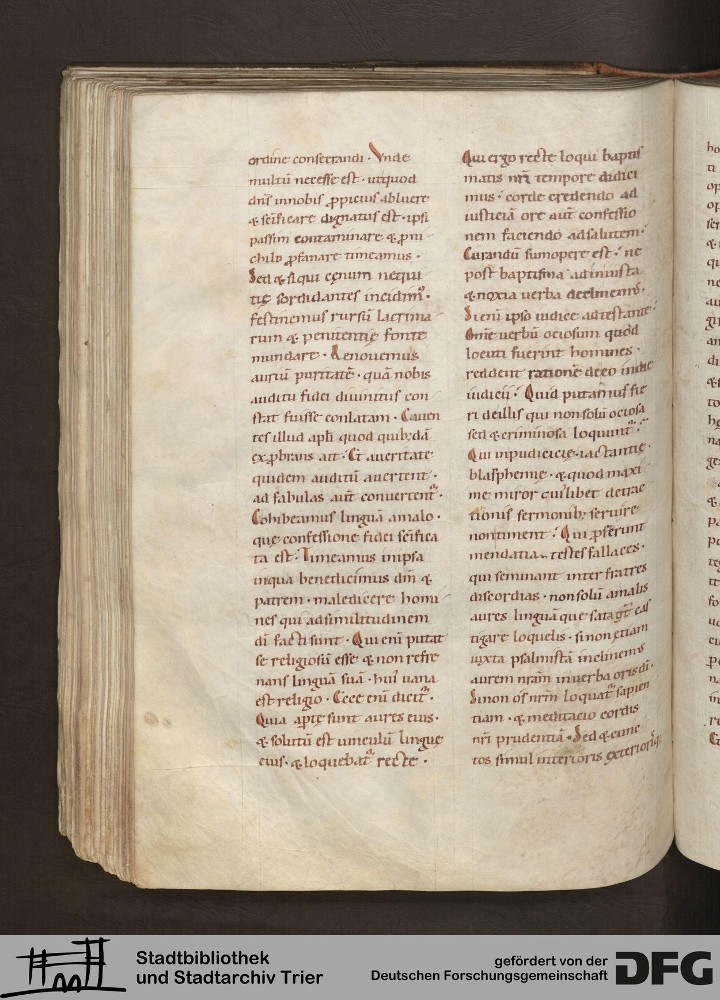 ordine consecrandi · Vnde
multū necesse est · ut quod
dn̄s in nobis ꝓpicius abluere
& sc̄ificare dignatus est · ipsi
passim contaminare & ꝓni
ciose ꝓfanare timeamus ·
Sed & si qui cęnum nequi
tię sordidantes incidim᷒ ·
festinemus rursū lacrima
rum & penitentię fonte
mundare · Renouemus
auriū puritatē · quā nobis
auditu fidei diuinitus con
stat fuisse conlatam · Cauen
tes illud apl̄i quod quibusdā
exꝓbrans ait · Et a ueritate
quidem auditū auertent ·
ad fabulas aut̄ conuertent᷑ ·
Cohibeamus linguā a malo ·
quę confessione fidei sc̄ifica
ta est · Timeamus in ipsa
in qua benedicimus dm̄ &
patrem · maledicere homi
nes qui ad similitudinem
dī facti sunt · Qui eni putat
se religiosū esse & non refre
nans linguā suā · hui᷒ uana
est religio · Ecce enī dicit᷑ ·
Quia aptę sunt aures eius ·
& solutū est uinculū linguę
eius · & loquebat᷑ recte ·
Qui ergo recte loqui baptis
matis nr̄i tempore didici
mus · corde credendo ad
iusticiā ore aut̄ confessio
nem faciendo ad salutem ·
Curandū summopere est · ne
post baptisma ad iniusta
& noxia uerba declinem᷒ ·
Si enī ipso iudice adtestante ·
Omne uerbū ociosum quod
locuti fuerint homines ·
reddent rationē de eo in die
iudicii · Quid putam᷒ fie
ri de illis qui non solū ociosa
sed & criminosa loquunt᷑ ·
Qui inpudicicię · iactantię ·
blasphemię · & quod maxi
me miror cuilibet detrac
tionis sermonibꝫ seruire
non timent · Qui ꝓferunt
mendatia · testes fallaces ·
qui seminant inter fratres
discordias · non solū a malis
aures linguāque satagit᷑ cas
tigare loquelis · si non etiam
iuxta psalmistā inclinem᷒
aurem nr̄am in uerba oris dī ·
Si non os nr̄m loquat᷑ sapien
tiam · & meditacio cordis
nr̄i prudentiā · Sed & cunc
tos simul interioris exteriorisq;
Stadtbibliothek
und Stadtarchiv Trier
gefördert von der
Deutschen Forschungsgemeinschaft
DFG